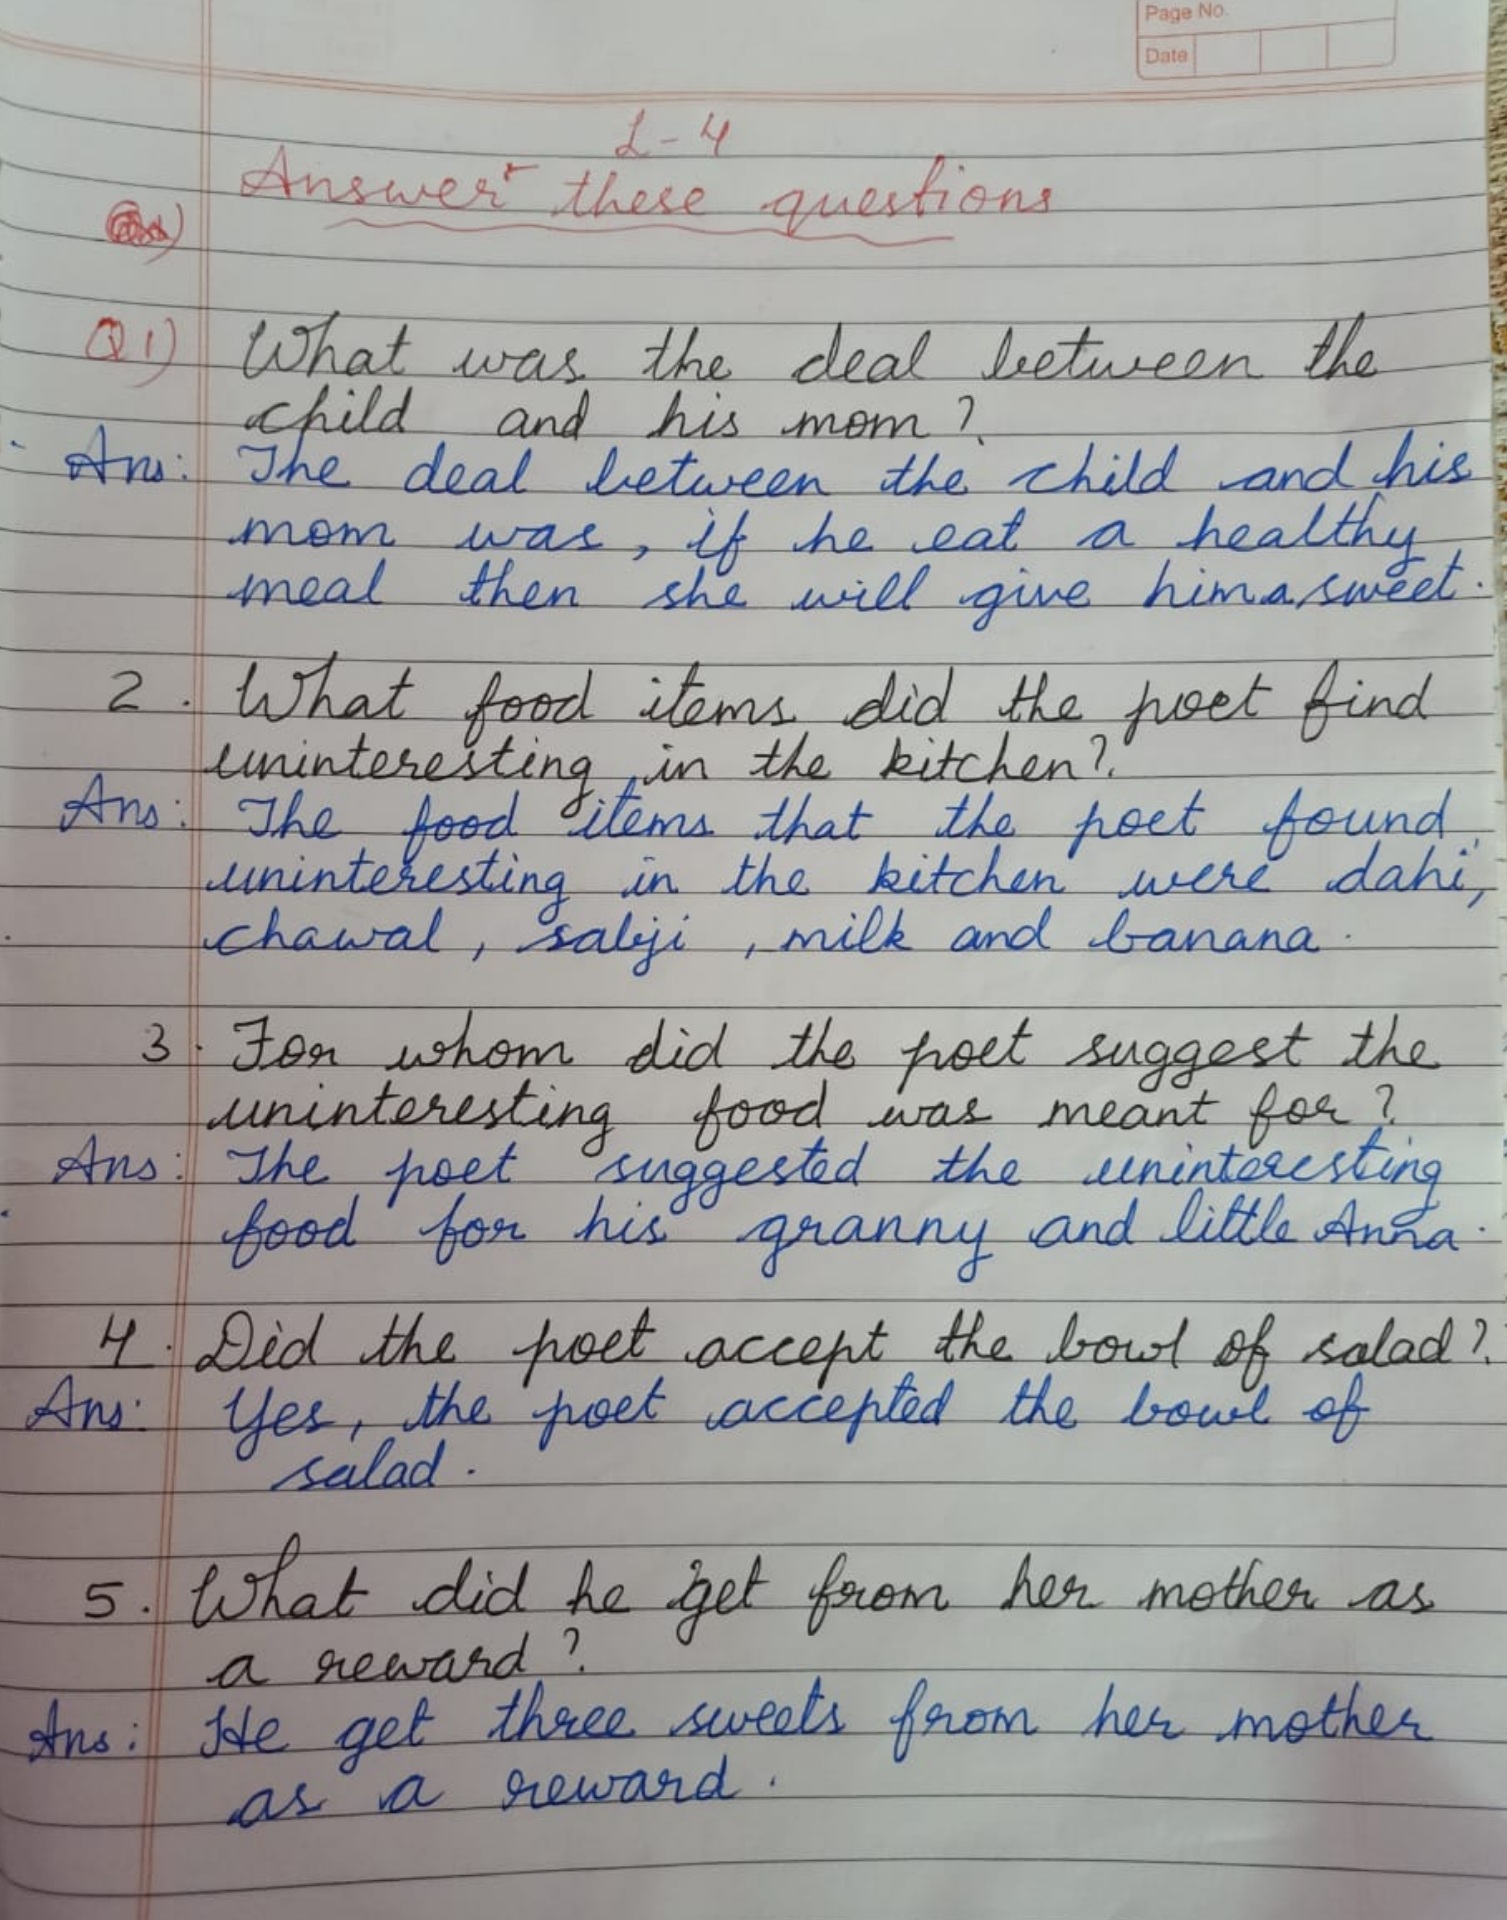 Page No.
Date
L-4
Answer these questions
Q1) What was the deal between the
child and his mom?
Ans: The deal between the child and his
mom was, if he eat a healthy
meal then she will give him a sweet.
2. What food items did the poet find
uninteresting in the kitchen?
Ans: The food items that the poet found
uninteresting in the kitchen were dahi,
chawal, sabji, milk and banana.
3. For whom did the poet suggest the
uninteresting food was meant for?
Ans: The poet suggested the uninteresting
food for his granny and little Anna.
4. Did the poet accept the bowl of salad?
Ans: Yes, the poet accepted the bowl of
salad.
5. What did he get from her mother as
a reward?
Ans: He get three sweets from her mother
as a reward.